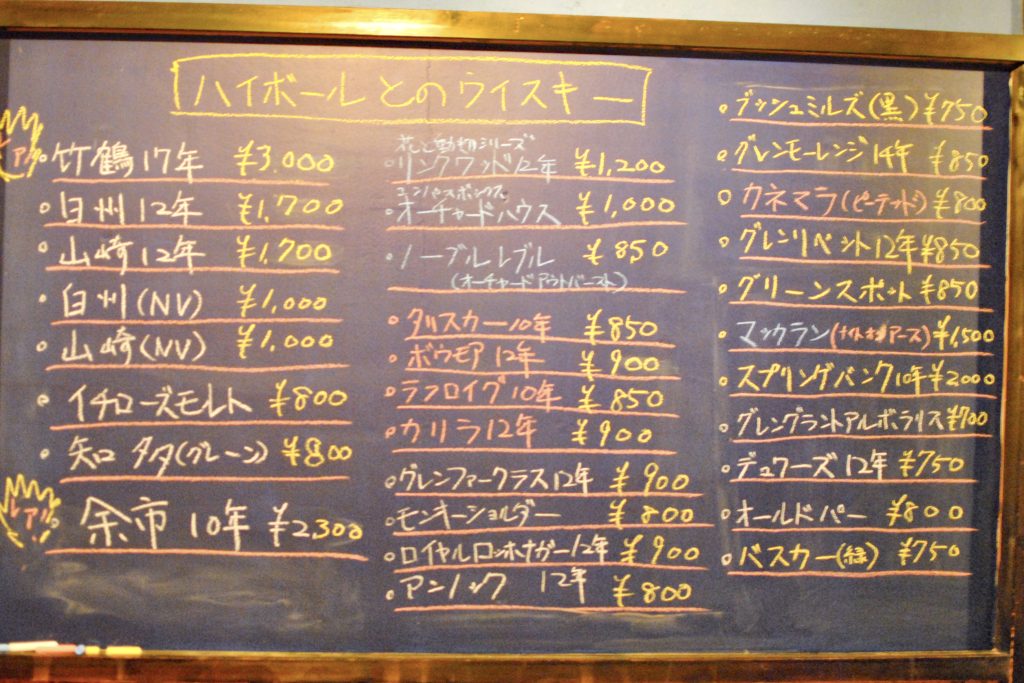 ハイボールとのウイスキー
レア
竹鶴17年 ¥3.000
白州12年 ¥1,700
山崎12年 ¥1,700
白州(NV) ¥1,000
山崎(NV) ¥1,000
イチローズモルト ¥800
知多(グレーン) ¥800
レア
余市 10年 ¥2,300
花と動物シリーズ
リンクウッド12年 ¥1,200
コンパスボックス
オーチャードハウス ¥1,000
ノーブルレブル ¥850
(オーチャードアウトバースト)
タリスカー10年 ¥850
ボウモア12年 ¥900
ラフロイグ10年 ¥850
カリラ12年 ¥900
グレンファークラス12年 ¥900
モンキーショルダー ¥800
ロイヤルロッホナガー12年 ¥900
アンノック 12年 ¥800
ブッシュミルズ(黒) ¥750
グレンモーレンジ14年 ¥850
カネマラ(ピーテッド) ¥800
グレンリベット12年 ¥850
グリーンスポット ¥850
マッカラン(ナイトオンアース) ¥1,500
スプリングバンク10年 ¥2000
グレングラントアルボラリス ¥700
デュワーズ12年 ¥750
オールドパー ¥800
バスカー(緑) ¥750